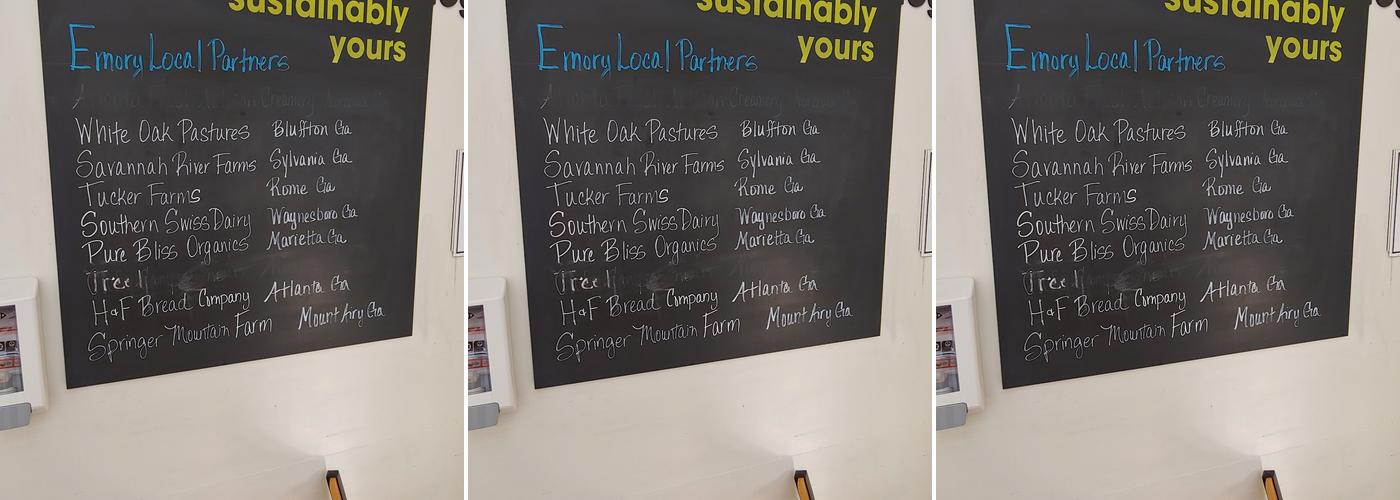 sustainably
yours
Emory Local Partners
White Oak Pastures Bluffton Ga
Savannah River Farms Sylvania Ga
Tucker Farms Rome Ga
Southern Swiss Dairy Waynesboro Ga
Pure Bliss Organics Marietta Ga
Tree
H&F Bread Company Atlanta Ga
Springer Mountain Farm Mount Airy Ga
sustainably
yours
Emory Local Partners
White Oak Pastures Bluffton Ga
Savannah River Farms Sylvania Ga
Tucker Farms Rome Ga
Southern Swiss Dairy Waynesboro Ga
Pure Bliss Organics Marietta Ga
Tree
H&F Bread Company Atlanta Ga
Springer Mountain Farm Mount Airy Ga
sustainably
yours
Emory Local Partners
White Oak Pastures Bluffton Ga
Savannah River Farms Sylvania Ga
Tucker Farms Rome Ga
Southern Swiss Dairy Waynesboro Ga
Pure Bliss Organics Marietta Ga
Tree
H&F Bread Company Atlanta Ga
Springer Mountain Farm Mount Airy Ga